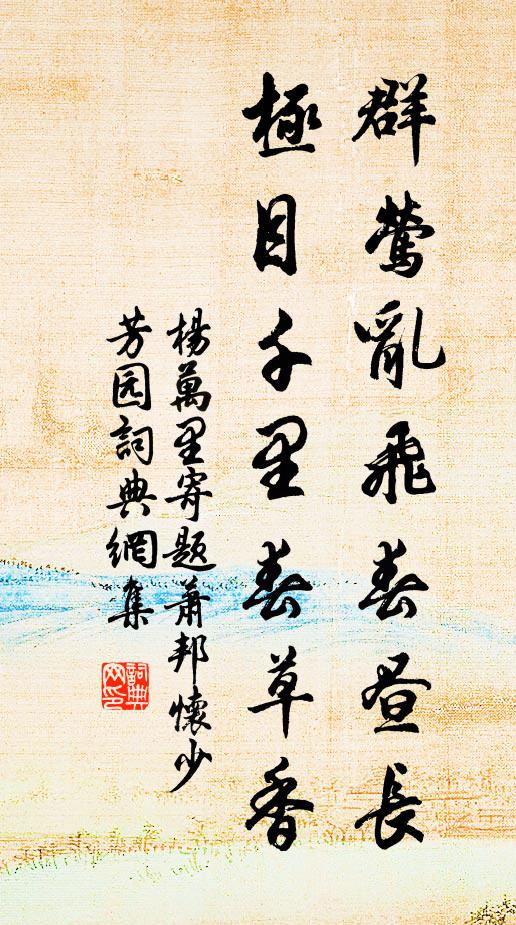 群莺亂飛春昼長
極目千里春草香
楊萬里寄題蕭邦懷少
芳园詞典網集
詞典网印